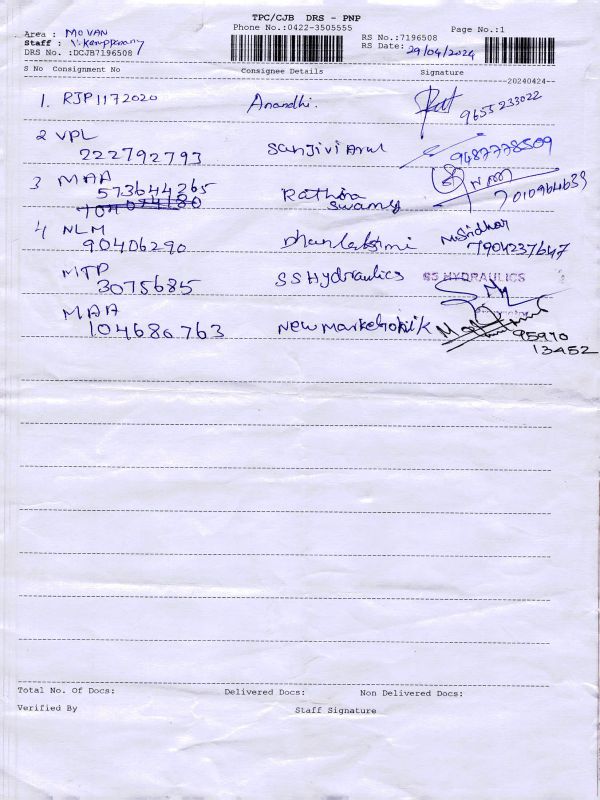 TPC/CJB DRS - PNP
Phone No.:0422-3505555
Page No.:1
Area : MOVAN
Staff :
RS No.:7196508
DRS No. :DCJB7196508
RS Date: 29/04/2024
S No Consignment No Consignee Details Signature
20240424
1. RJP1172020 Anandhi. 9655233022
2 VPL
222792793 Sanjivi Arul 9487778509
3 MAA
573644265 Rathina swamy 7010964639
4 NLM
90406290 Dhanlakshmi M.Sridhar 7904237647
MTP
3075685 SS Hydraulics SS HYDRAULICS
MAA
104686763 New Market 95970
13452
Total No. Of Docs: Delivered Docs: Non Delivered Docs:
Verified By Staff Signature